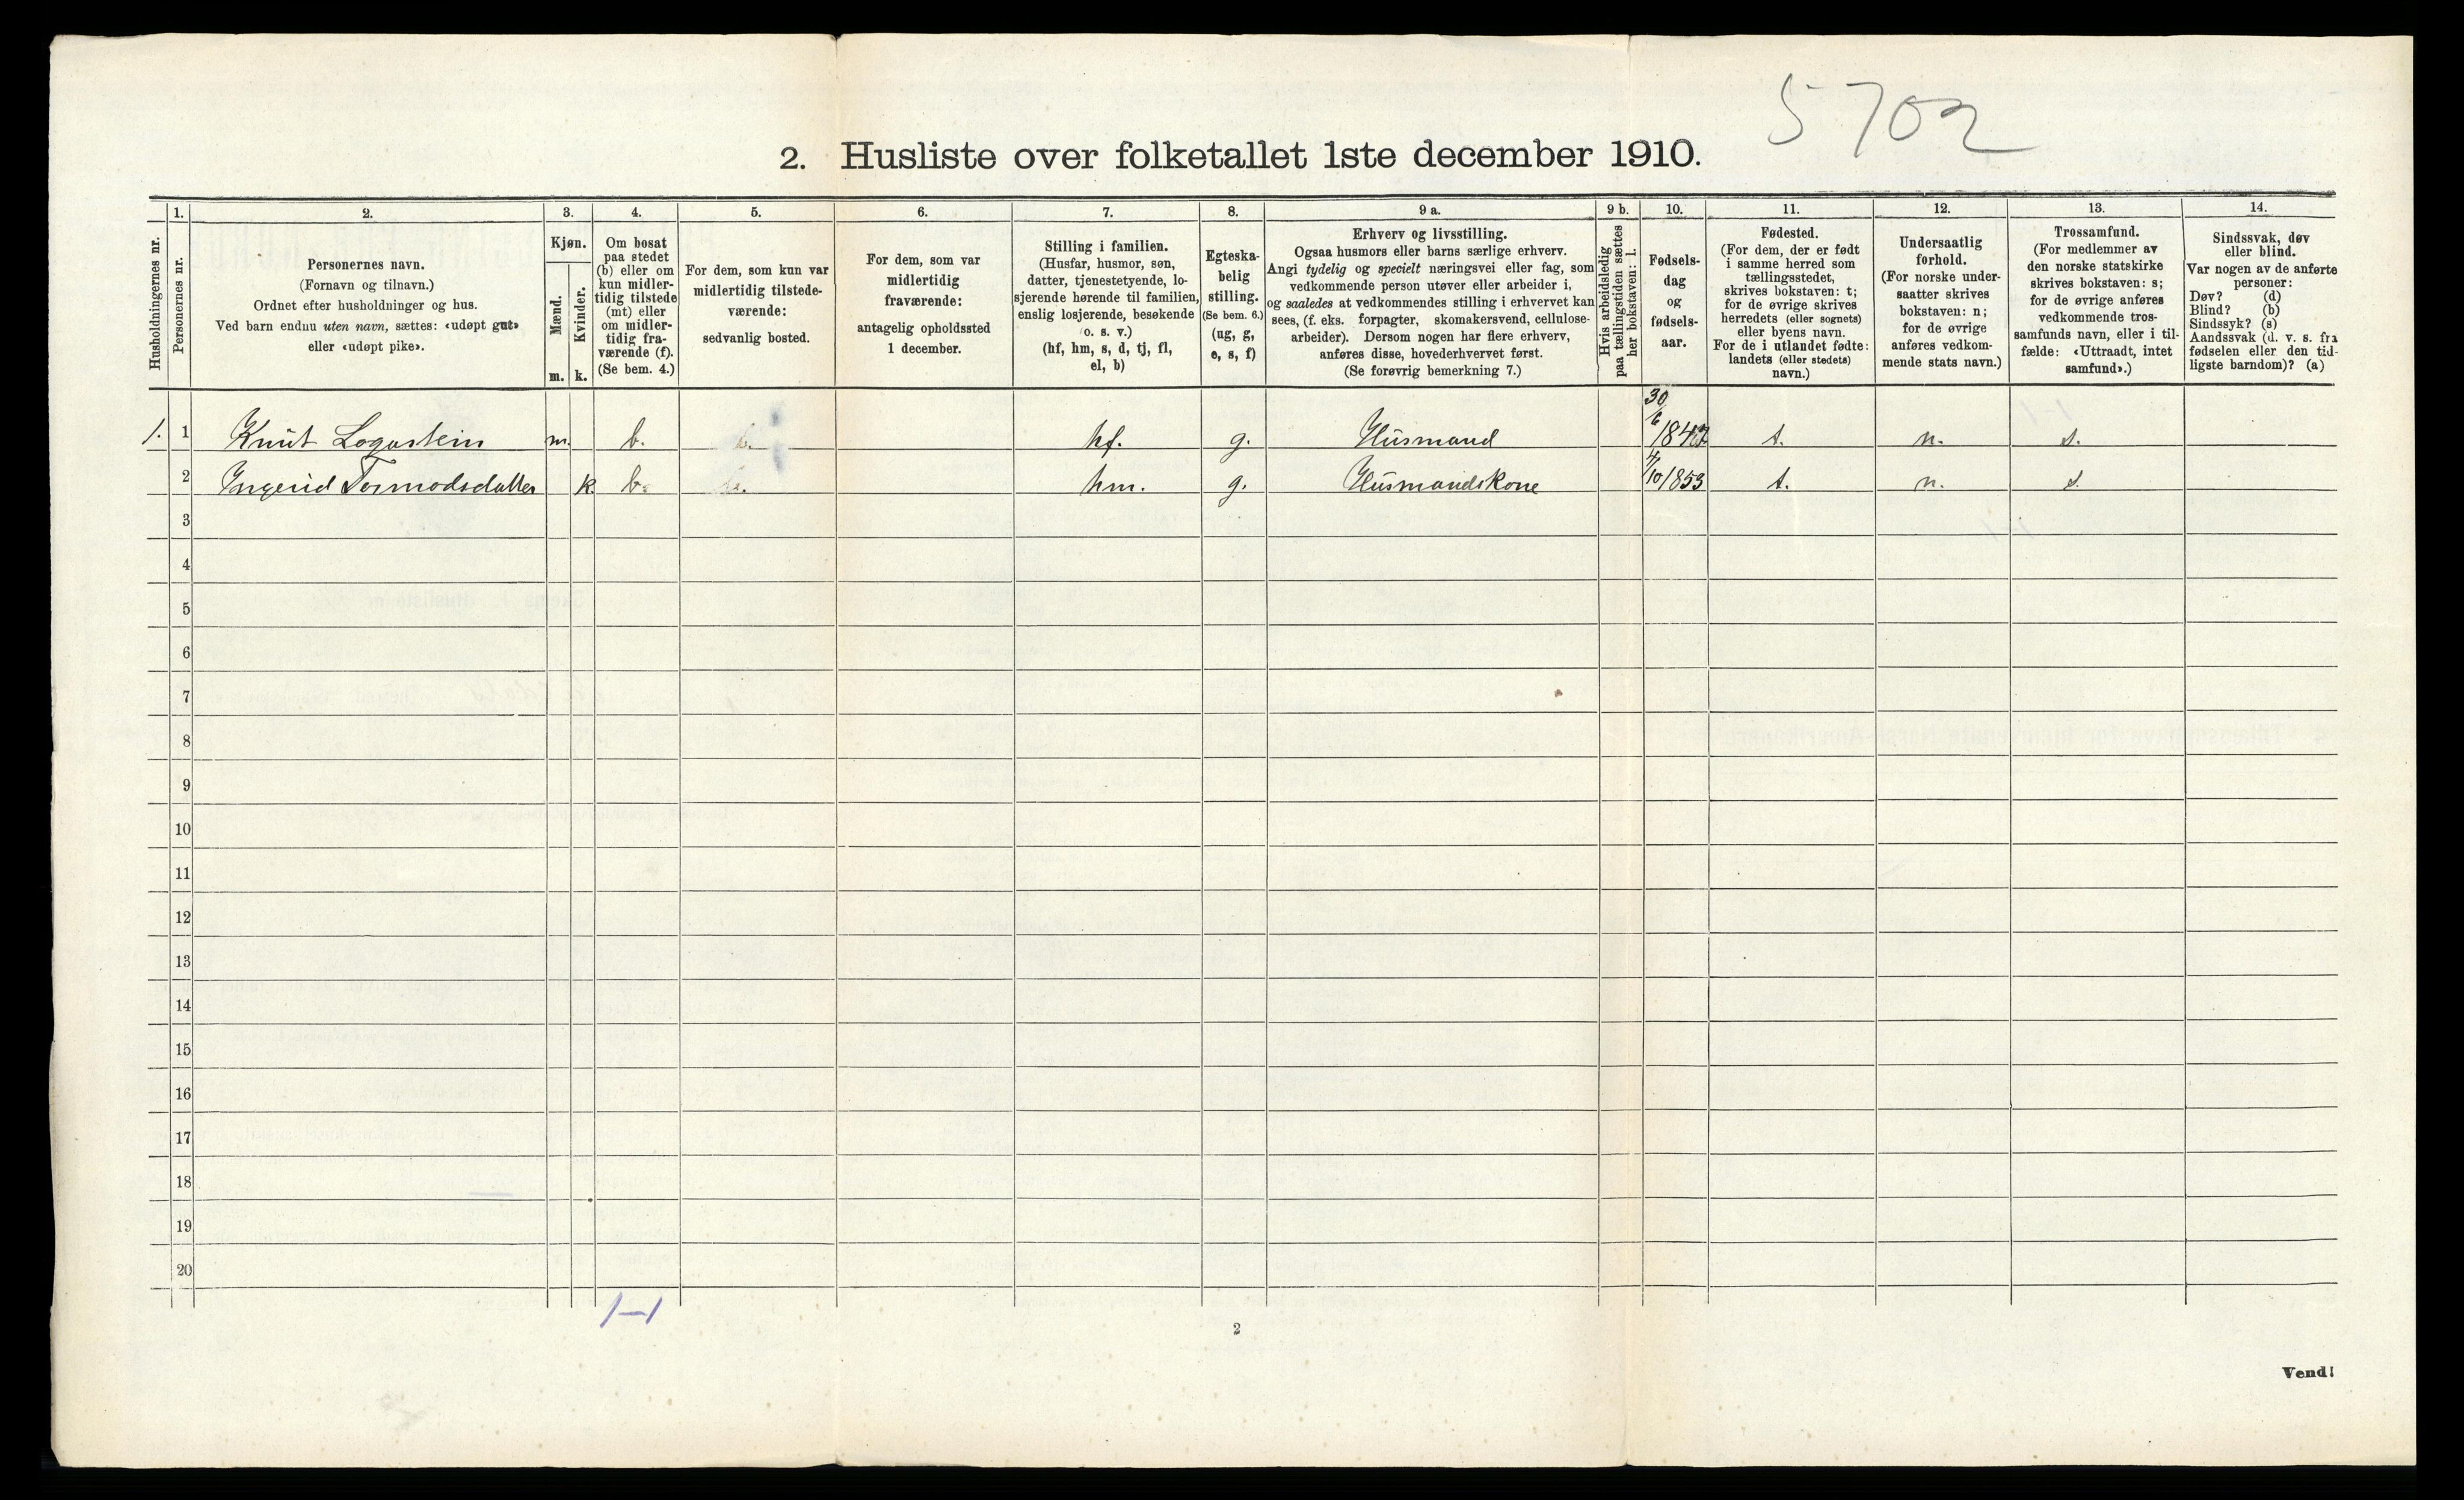 5702
2. Husliste over folketallet 1ste december 1910.
Husholdningernes nr.
1.
Personernes nr.
2.
Personernes navn.
(Fornavn og tilnavn.)
Ordnet efter husholdninger og hus.
Ved barn endnu uten navn, sættes: «udøpt gut»
eller «udøpt pike».
3.
Kjøn.
Mænd.
m.
Kvinder.
k.
4.
Om bosat
paa stedet
(b) eller om
kun midler-
tidig tilstede
(mt) eller
om midler-
tidig fra-
værende (f).
(Se bem. 4.)
5.
For dem, som kun var
midlertidig tilstede-
værende:
sedvanlig bosted.
6.
For dem, som var
midlertidig
fraværende:
antagelig opholdssted
1 december.
7.
Stilling i familien.
(Husfar, husmor, søn,
datter, tjenestetyende, lo-
sjerende hørende til familien,
enslig losjerende, besøkende
o. s. v.)
(hf, hm, s, d, tj, fl,
el, b)
8.
Egteska-
belig
stilling.
(Se bem. 6.)
(ug, g,
e, s, f)
9 a.
Erhverv og livsstilling.
Ogsaa husmors eller barns særlige erhverv.
Angi tydelig og specielt næringsvei eller fag, som
vedkommende person utøver eller arbeider i,
og saaledes at vedkommendes stilling i erhvervet kan
sees, (f. eks. forpagter, skomakersvend, cellulose-
arbeider). Dersom nogen har flere erhverv,
anføres disse, hovederhvervet først.
(Se forøvrig bemerkning 7.)
9 b.
Hvis arbeidsledig
paa tællingstiden sættes
her bokstaven: l.
10.
Fødsels-
dag
og
fødsels-
aar.
11.
Fødested.
(For dem, der er født
i samme herred som
tællingsstedet,
skrives bokstaven: t;
for de øvrige skrives
herredets (eller sognets)
eller byens navn.
For de i utlandet fødte:
landets (eller stedets)
navn.)
12.
Undersaatlig
forhold.
(For norske under-
saatter skrives
bokstaven: n;
for de øvrige
anføres vedkom-
mende stats navn.)
13.
Trossamfund.
(For medlemmer av
den norske statskirke
skrives bokstaven: s;
for de øvrige anføres
vedkommende tros-
samfunds navn, eller i til-
fælde: «Uttraadt, intet
samfund».)
14.
Sindssvak, døv
eller blind.
Var nogen av de anførte
personer:
Døv? (d)
Blind? (b)
Sindssyk? (s)
Aandssvak (d. v. s. fra
fødselen eller den tid-
ligste barndom)? (a)
1. 1 Knut Logastein m. b. b. hf. g. Husmand 30/6 t. n. s.
2 Ingerid Tormodsdatter k. b. b. hm. g. Husmandskone 4/10 1853 t. n. s.
3
4
5
6
7
8
9
10
11
12
13
14
15
16
17
18
19
20
1-1
2
Vend!